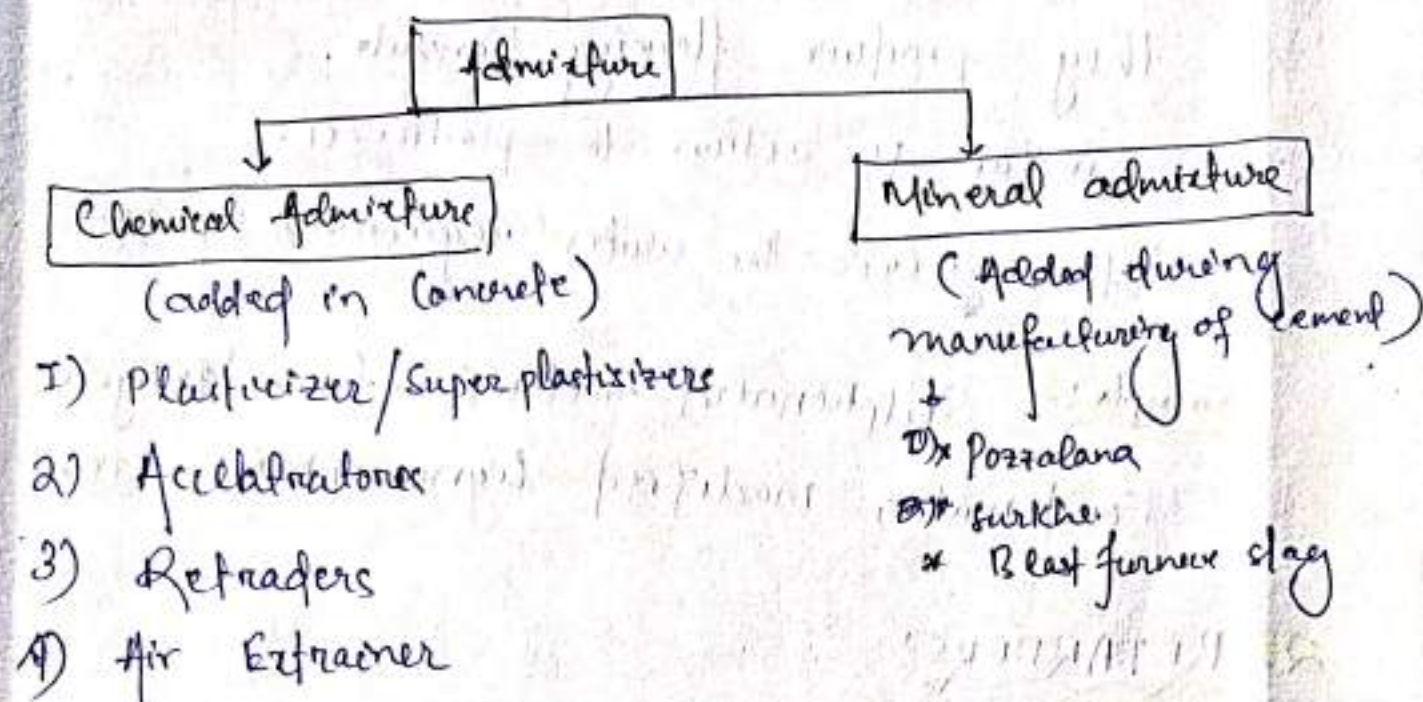 Admixture
Chemical Admixture
(added in Concrete)
1) Plasticizer/Super plastisizers
2)
3) Retraders
4) Air Extrainer
Mineral admixture
(Added during
manufacturing of cement)
* Pozzalana
* Surkhi
* Blast furnace slag